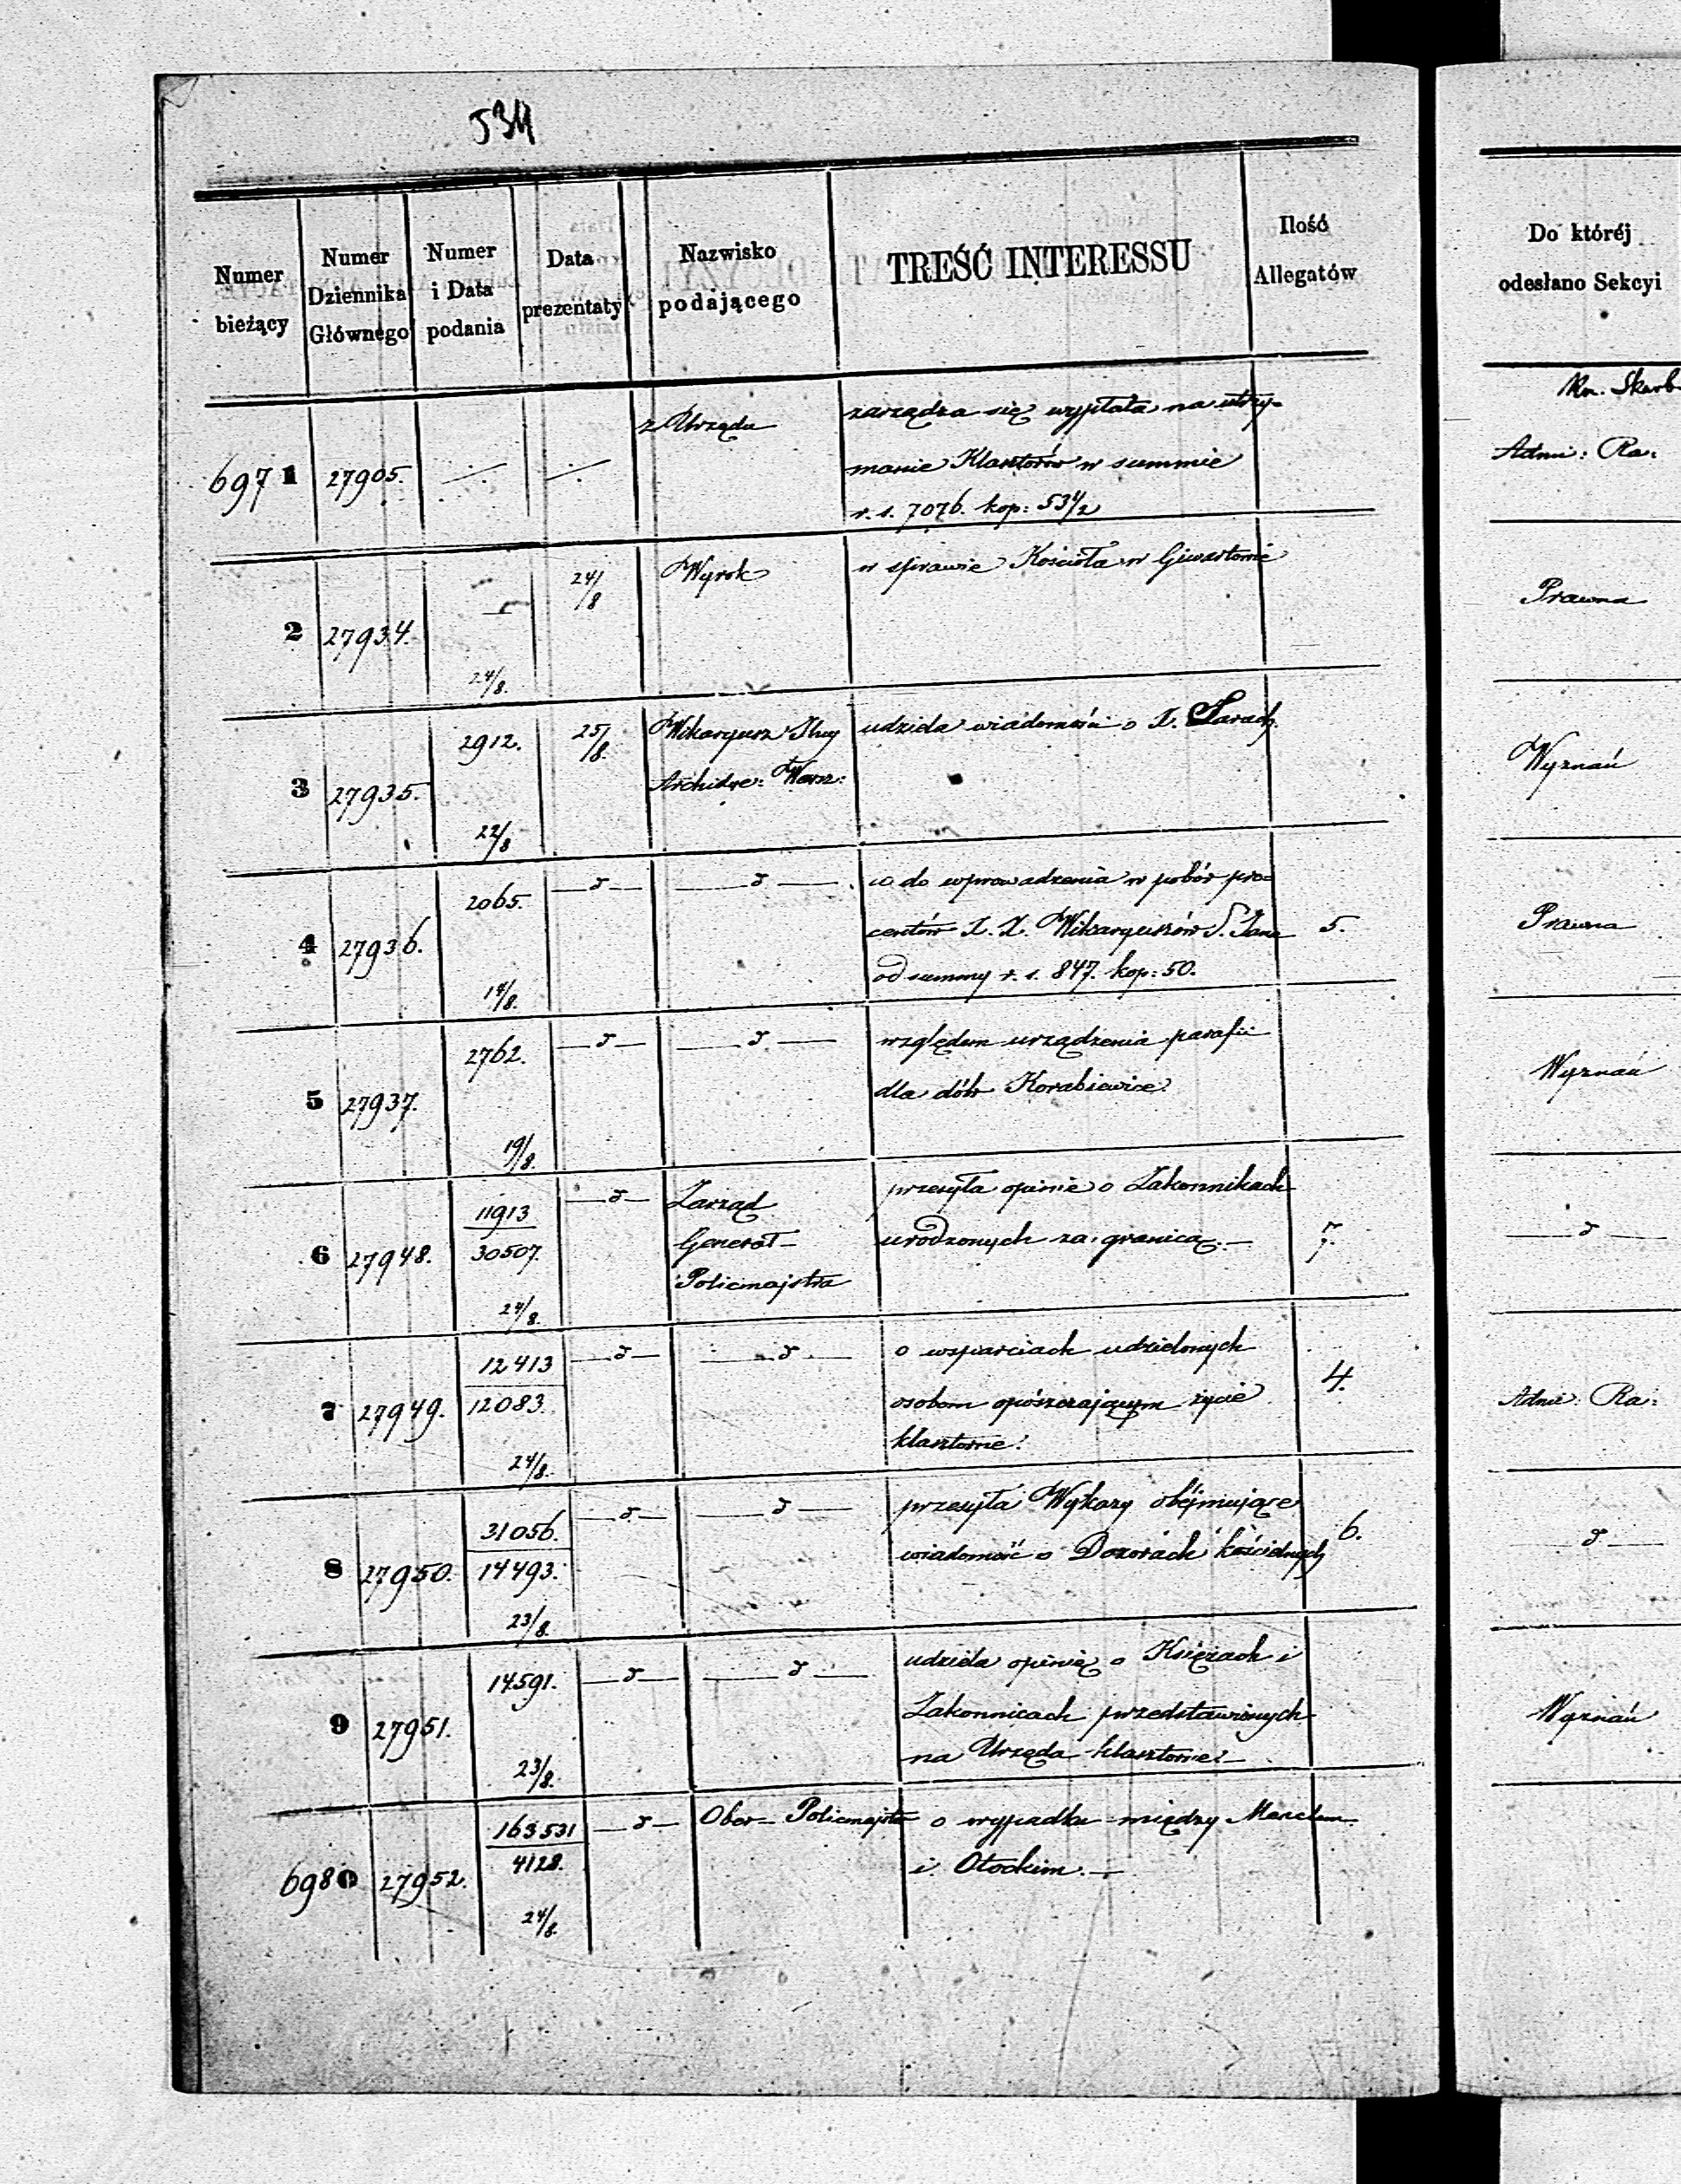 534
Numer bieżący | Numer Dziennika Głównego | Numer i Data podania | Data prezentaty | Nazwisko podającego | TREŚĆ INTERESSU | Ilość Allegatów | Do któréj odesłano Sekcyi
Skarb
6971 | 27905. | z Urzędu | zarządza się wypłata na utrzy=
manie Klasztorów w summie | Admi: Ra:
r. s. 7076. kop: 53 1/2
2 | 27934. | 24/8. | 24/8 | Wyrok | w sprawie Kościoła w Giwartowie | Prawna
3 | 27935. | 2912. 22/8 | 25/8. | Wikaryusz Jlny | udziela wiadomości o X. | Wyznań
Archidye: Warsz:
4 | 27936. | 2065. 14/8. | —d— | —d— | co do wprowadzenia w pobór pro=
centów X. X. Wikaryuszów S. Jana | 5. | Prawna
od summy r. s. 847. kop: 50.
5 | 27937. | 2762. 19/8. | —d— | —d— | względem urządzenia parafii
dla dóbr Korabiewice | Wyznań
6 | 27948. | 11913 30507. 24/8. | —d— | Zarząd | przesyła opinie o Zakonnikach
Generał- | urodzonych za granicą.— | 7. | —d—
Policmajstra
7 | 27949. | 12413 12083. 24/8. | —d— | —d— | o wsparciach udzielonych | 4.
osobom opószczającym życie | Admi: Ra:
klasztorne.
8 | 27950. | 31056. 14493. 23/8. | —d— | —d— | przesyła Wykazy obéjmujące | 6.
wiadomość o Dozorach kościelnych | —d—
9 | 27951. | 14591. 23/8. | —d— | —d— | udziela opinię o Księżach i
Zakonnicach przedstawionych | Wyznań
na Urzęda klasztorne.—
6980 | 27952. | 163531 4128. 24/8. | —d— | Ober-Policmajster | o wypadku między
i Otockim.—